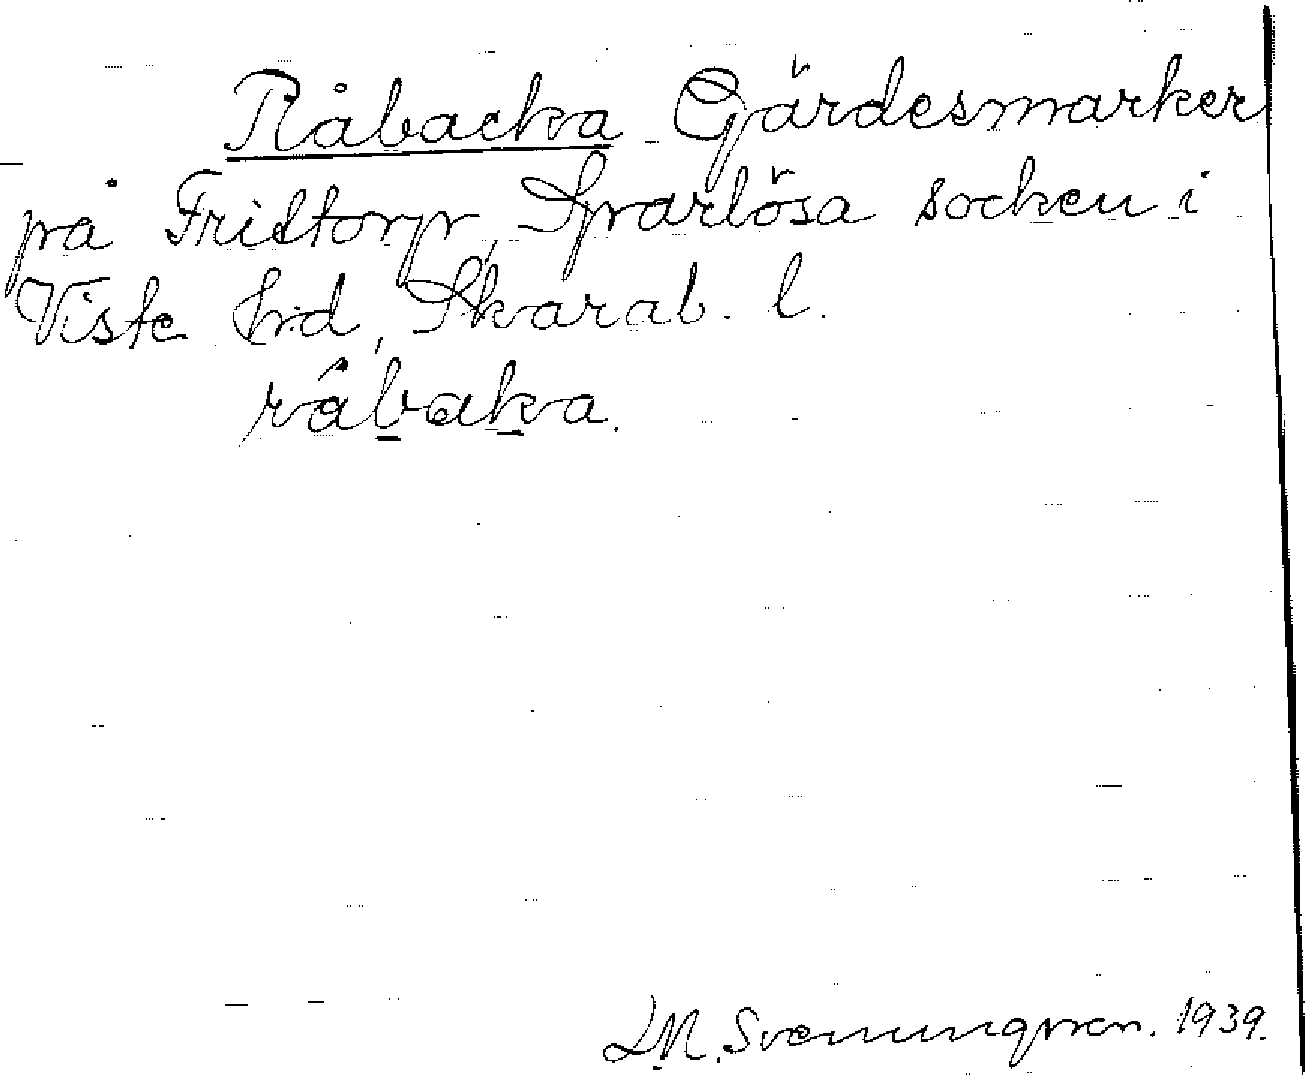 Råbacka Gärdesmarker
på Fristorp, Sparlösa socken i
Viste hrd, Skarab. l.
râbaka.
L.M. Svenungsson. 1939.